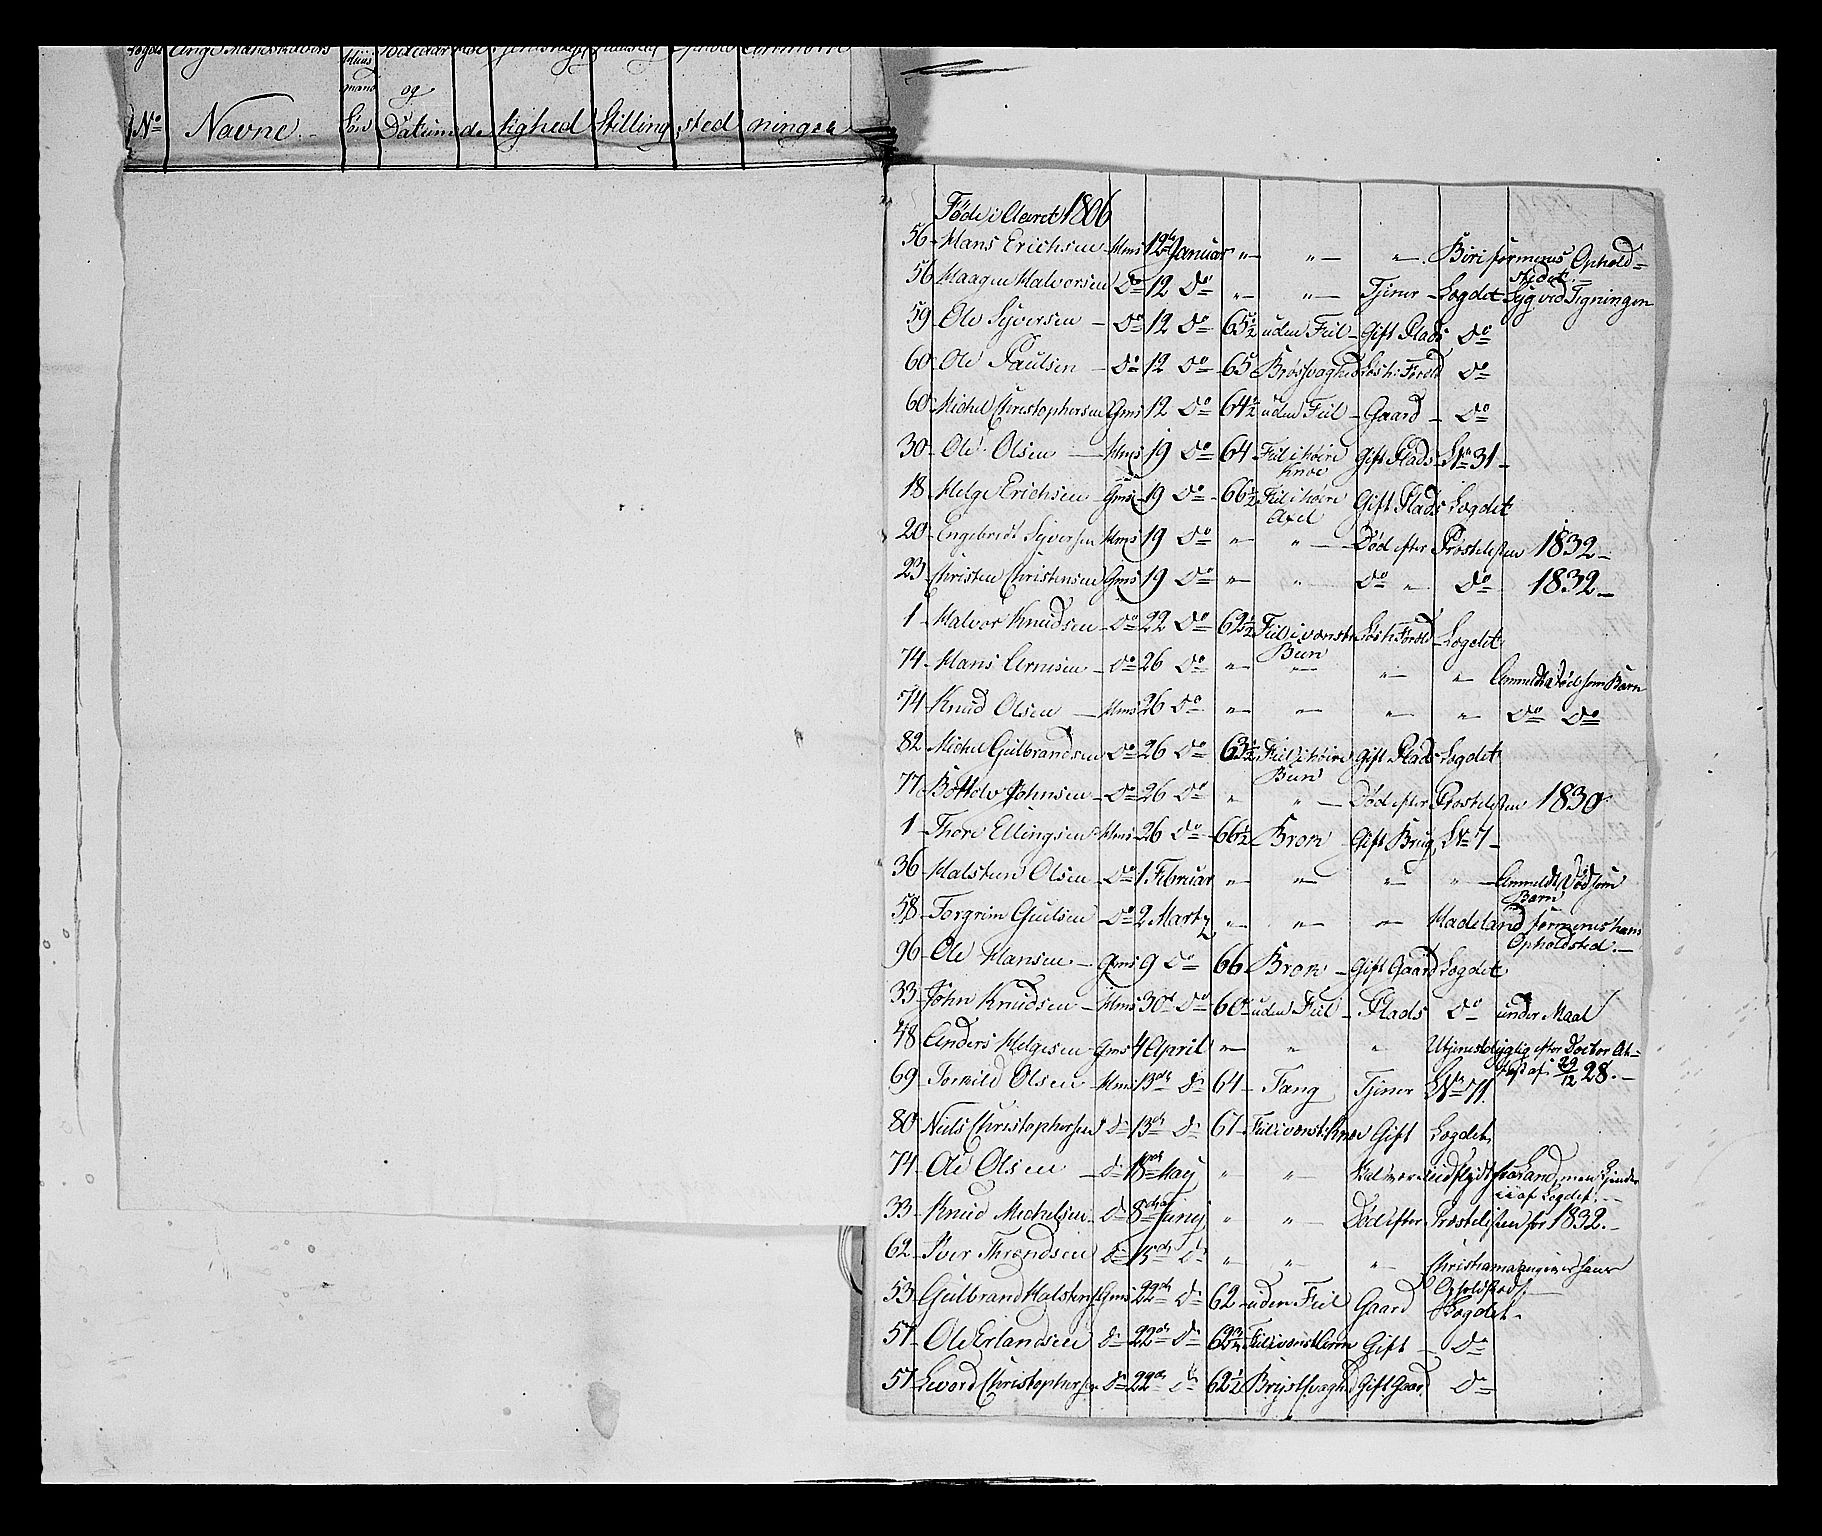 Unge Mandskabers
Huus
mand
og
No Navne Søn Datum de lighed Stilling sted ninger
Føde i Aaret 1806
56 Hans Erichsen Hms 12te Januar " " " Biri formenes Ophold-
stedet
56 Haagen Halvorsen Do 12 Do " " Tjener Logdet Syg ved Tegningen
59 Ole Syversen Do 12 Do 63½ uden Feil Gift Plads Do
60 Ole Paulsen Do 12 Do 65 Løs h: Foræld Do
60 Michel Christophersen Gms 12 Do 64½ uden Feil Gaard Do
30 Ole Olsen Hms 19 Do 64 Feil i høire Gift Plads No 31
Knæ
18 Helge Erichsen Gms 19 Do 66½ Feil i høire Gift Plads Logdet
Axel
20 Engebredt Syversen Hms 19 Do " " Død efter Præstelisten 1832
23 Christen Christensen Gms 19 Do " " Do " Do 1832
1 Halvor Knudsen Do 22 Do 62½ Feil i venst: Løs h: Foræld Logdet
Been
74 Hans Arnesen Do 26 Do " " " " Anmeldt Død som Barn
74 Knud Olsen Hms 26 Do " " " " Do Do
82 Michel Gulbrandsen Do 26 Do 63½ Feil i høire Gift Plads Logdet
Been
77 Bottolv Johnsen Do 26 Do " " Død efter Præstelisten 1830
1 Thore Ellingsen Hms 26 Do 66½ Brok Gift Brug No 7
36 Halsten Olsen Do 1 Februar " " " " Anmeldt Død som
Barn
58 Torgrim Gulsen Do 2 Marty " " " Hadeland formenes hans
Opholdsted
96 Ole Hansen Gms 9 Do 66 Brok Gift Gaard Logdet
33 John Knudsen Hms 30te Do 60 uden Feil Plads Do under Maal
48 Anders Helgesen Gms 4 April " " " Utjenstdygtig efter Doctor At-
test af 29/12 28
69 Torkild Olsen Hms 13de Do 64 Tang Tjener No 71
80 Niels Christophersen Do 13de Do 67 Feil i venst: Knæ Gift Logdet
74 Ole Olsen Do 18de May " " Skal være indflydt fra Land, men Gjender
ei af Logdet
33 Knud Michelsen Do 8de Juny " " Død efter Præstelisten for 1832
62 Iver Throndsen Do 15de Do " " " Christiania angives hans
Opholdsted
53 Gulbrand Halstensen Gms 22de Do 62 uden Feil Gaard Logdet
57 Ole Erlandsen Do 22de Do Feil i venst Arm Gift Do
57 Sevord Christophersen Do 22de Do 62½ Brystsvaghed Gift Gaard Do